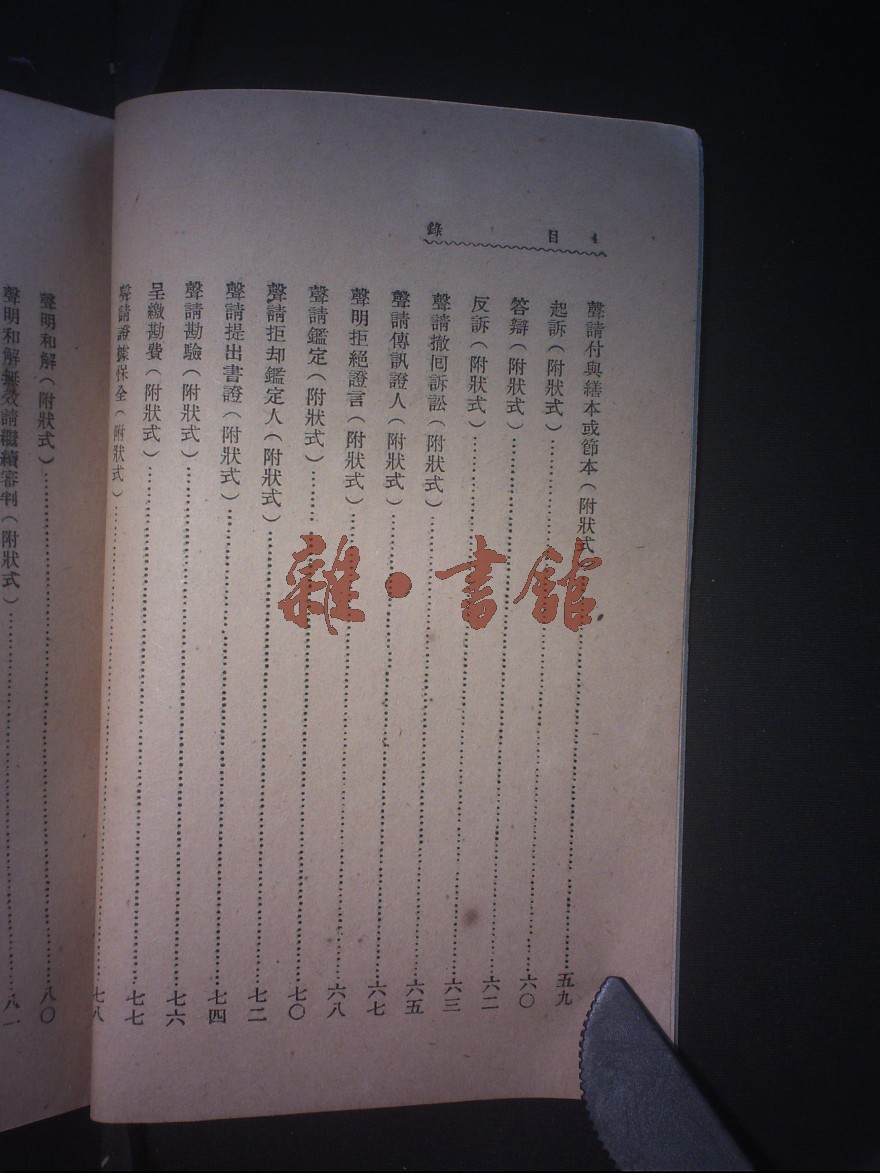 4 目錄
聲請付與繕本或節本（附狀式……五九
起訴（附狀式）……六〇
答辯（附狀式）……六二
反訴（附狀式）……六三
聲請撤囘訴訟（附狀式）……六五
聲請傳訊證人（附狀式）……六七
聲明拒絕證言（附狀式）……六八
聲請鑑定（附狀式）……七〇
聲請拒却鑑定人（附狀式）……七二
聲請提出書證（附狀式）……七四
聲請勘驗（附狀式）……七六
呈繳勘費（附狀式）……七七
聲請證據保全（附狀式）……七八
聲明和解（附狀式）……八〇
聲明和解無效請繼續審判（附狀式）……八一
雜·書館